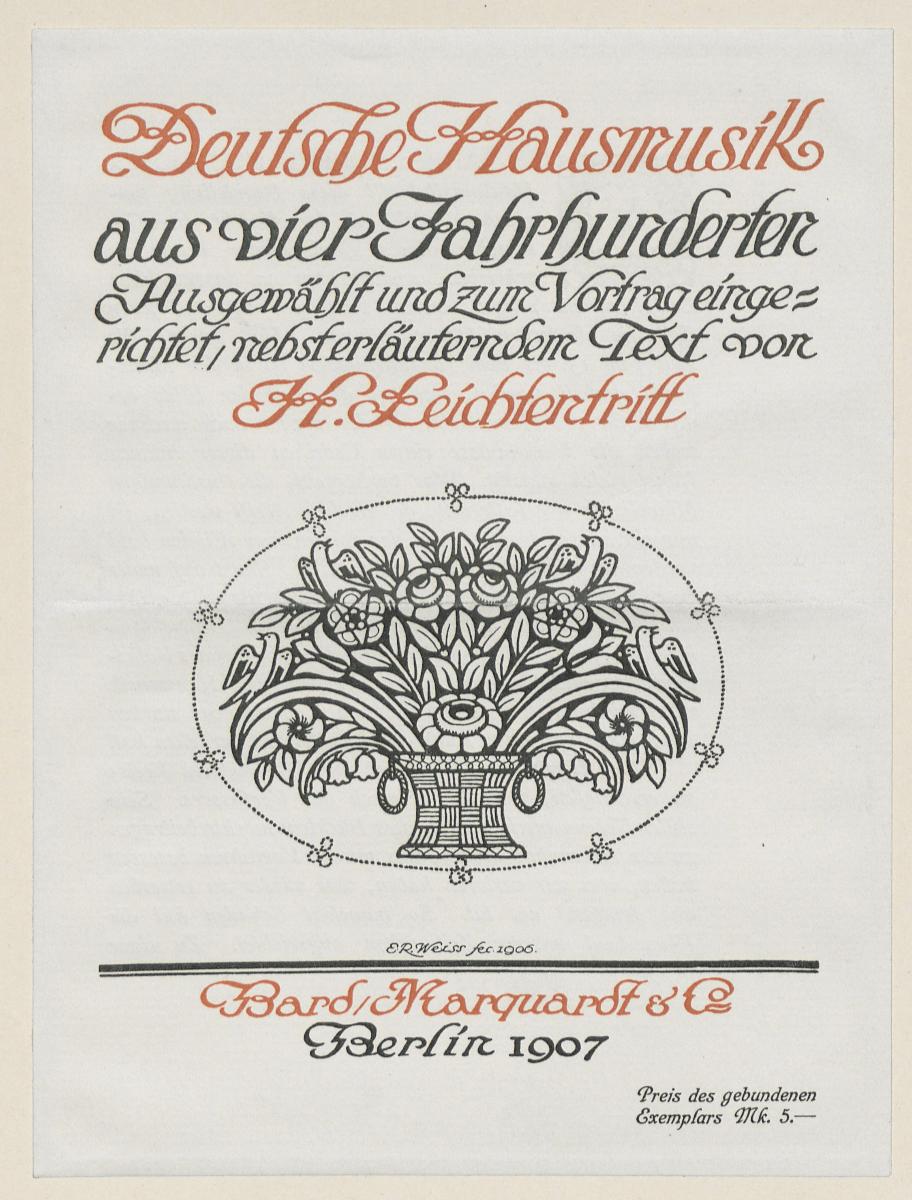 Deutsche Hausmusik
aus vier Jahrhunderten
Ausgewählt und zum Vortrag einge=
richtet, nebst erläuterndem Text von
H. Leichtentritt
E.R. Weiss fec. 1906.
Bard, Marquardt & Co
Berlin 1907
Preis des gebundenen
Exemplars Mk. 5.—